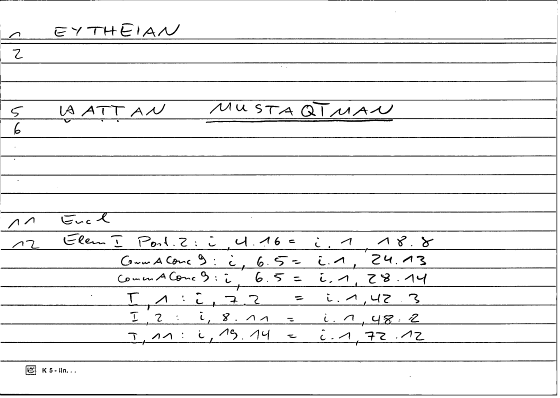 1 EYTHEIAN
2
5 ḤATṬAN MUSTAQĪMAN
6
11 Eucl
12 Elem I Post. 2 : i, 4.16 = i.1, 18.8
Comm A Conc 9 : i, 6.5 = i.1, 24.13
Comm A Conc 9 : i, 6.5 = i.1, 28.14
I, 1 : i, 7.2 = i.1, 42.3
I, 2 : i, 8.11 = i.1, 48.2
I, 11 : i, 19.14 = i.1, 72.12
K 5 - lin. . .